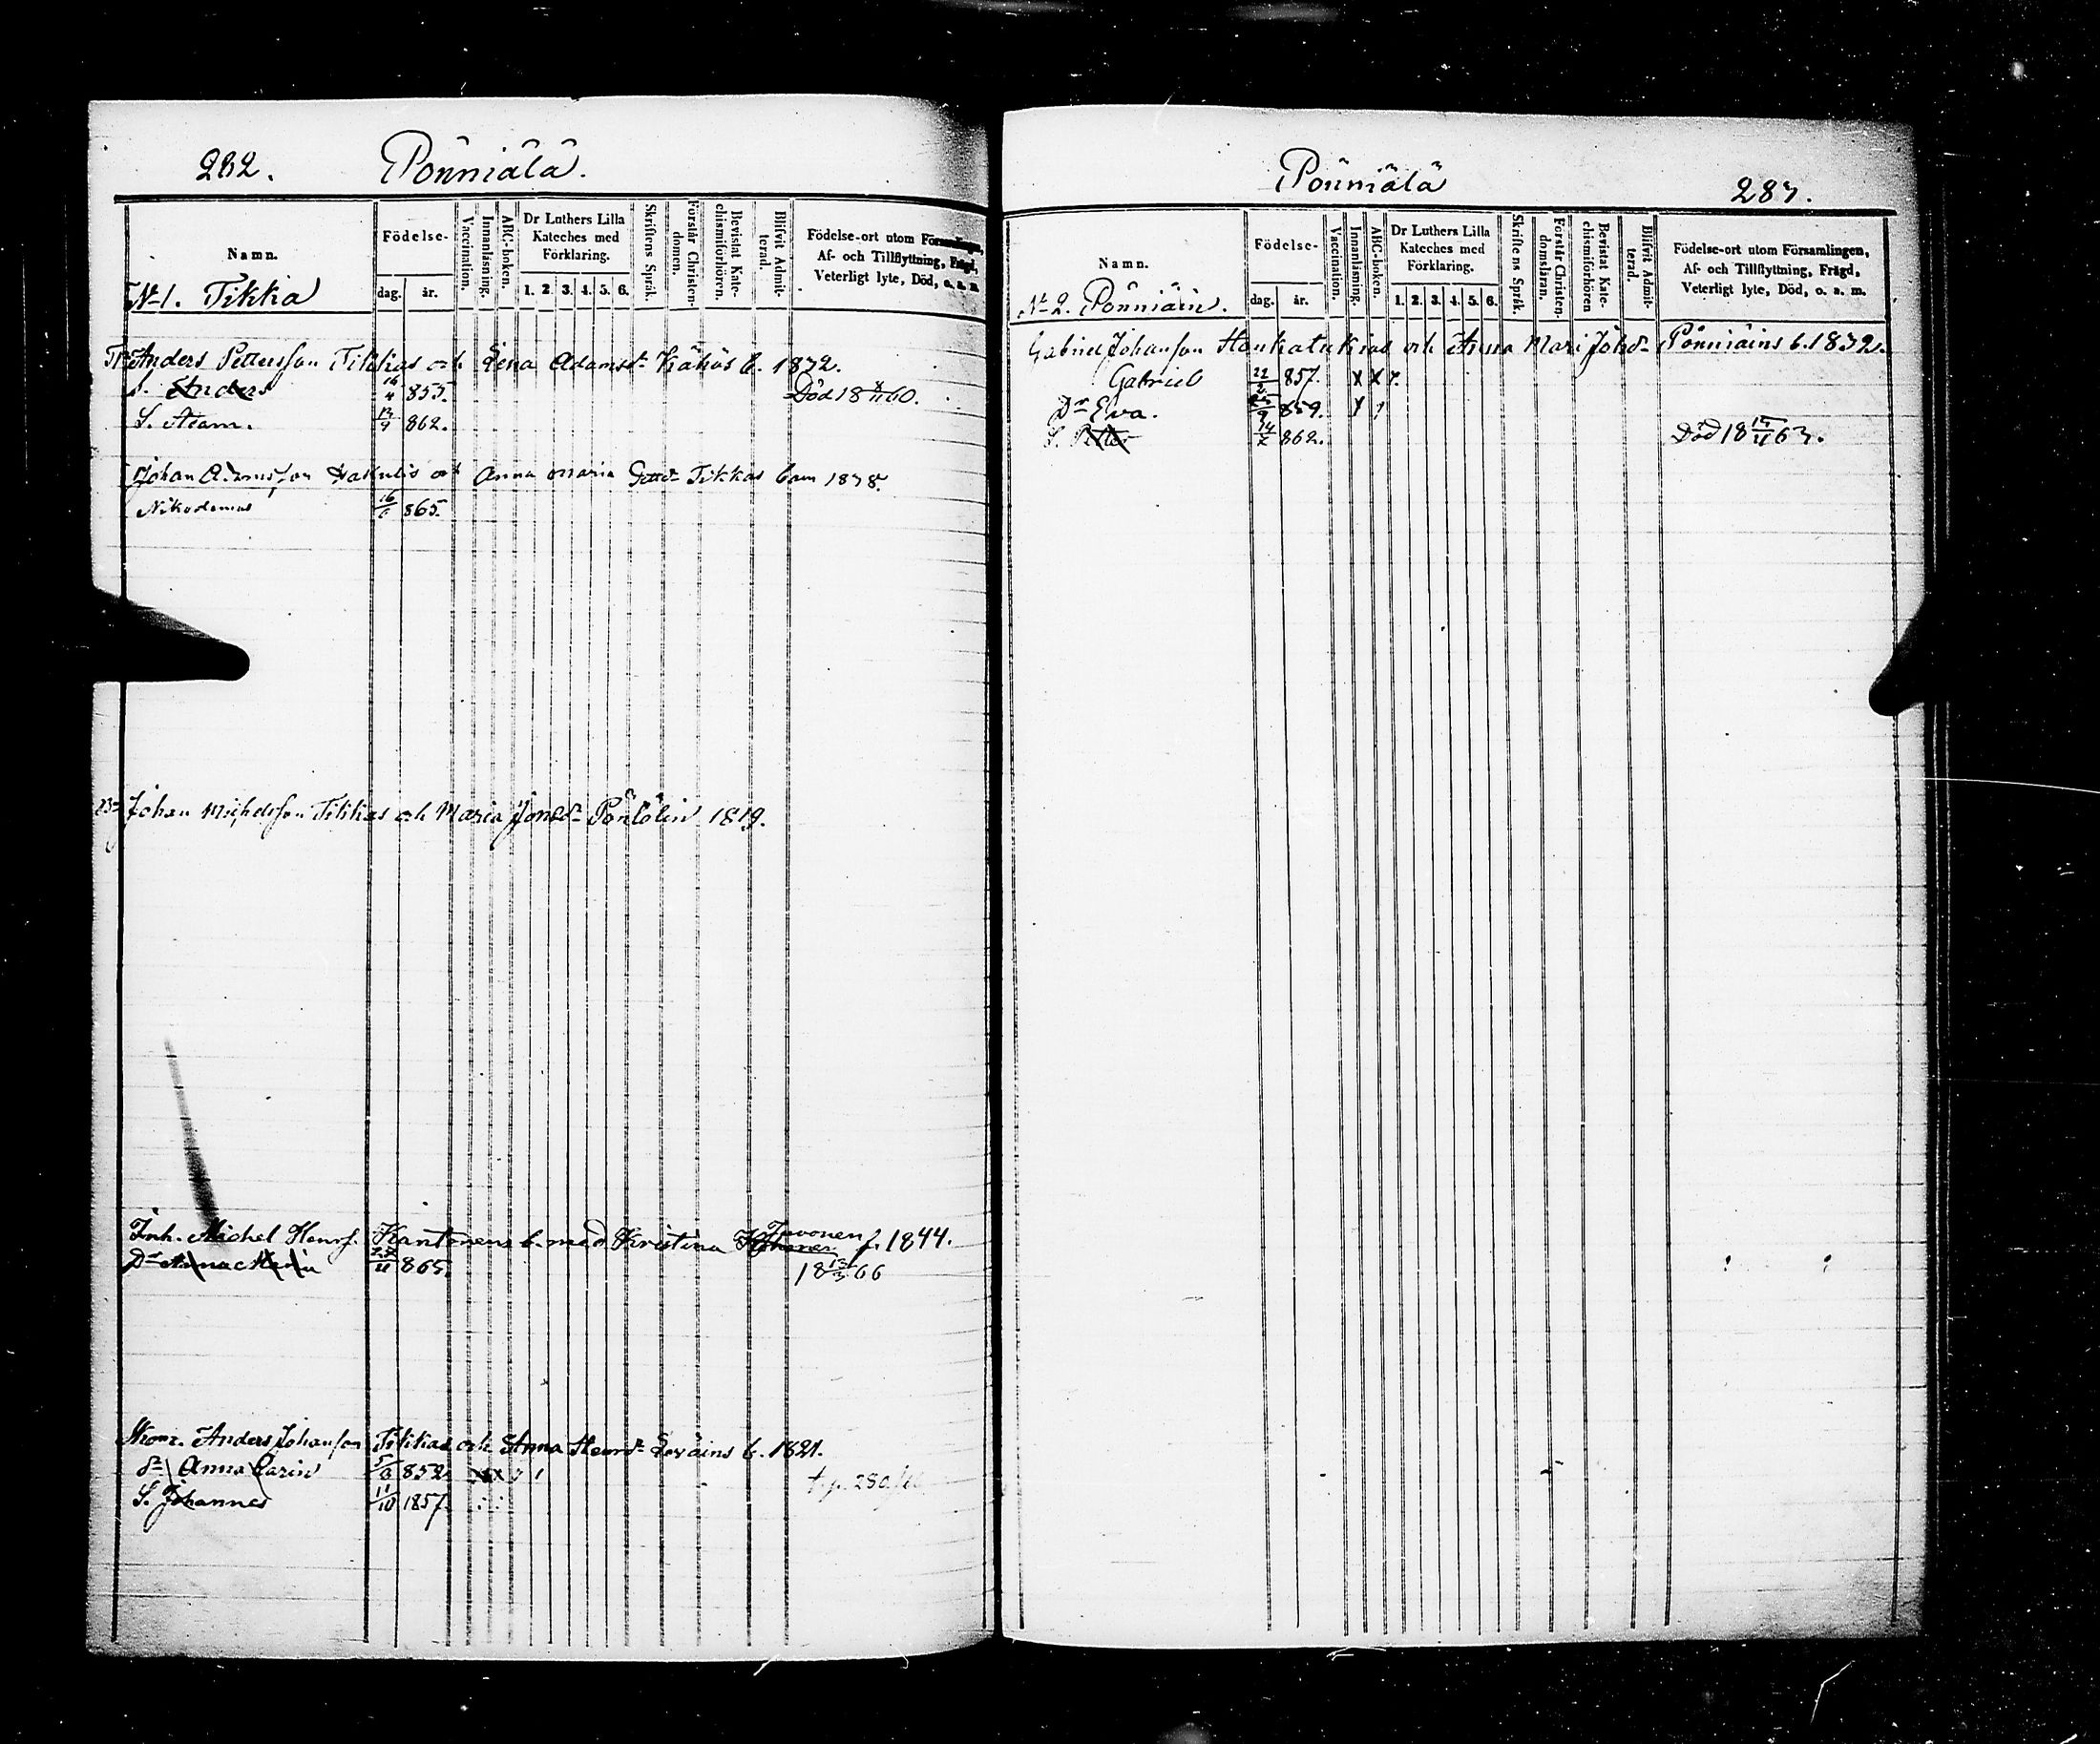 282. Pönniälä.
Namn.
Födelse-
dag. år.
Vaccination.
Innanläsning.
ABC-boken.
Dr Luthers Lilla Kateches med Förklaring.
1. 2. 3. 4. 5. 6.
Skriftens Språk.
Förstår Christen-domen.
Bevistat Kate-chismiförhören.
Blifvit Admit-terad.
Födelse-ort utom Församlingen,
Af- och Tillflyttning, Frägd,
Veterligt lyte, Död, o. a. m.
N-1. Tikka
Anders Pettersson Tikkas och Lena Adamsd- Kähös b. 1832.
S. Anders 16/4 855. Död 18 8/11 60.
S. Adam. 13/9 862.
Johan och Anna Maria Tikkas barn 1838.
Nikodemus 16/6 865.
Johan Michelsson Tikkas och Maria Jönsd- 1819.
Inh. Michel Henrs. Kantonens b. med Kristina Tuvonen f. 1844.
Dr Anna Maria 11 865. 18 13/3 66
Anders Johansson Tikkas och Anna Henrd- Leväins b. 1821.
Dr Anna Carin 5/8 852 x x 7 1 280
S. Johannes 11/10 1857.
Pönniälä 283.
Namn.
Födelse-
dag. år.
Vaccination.
Innanläsning.
ABC-boken.
Dr Luthers Lilla Kateches med Förklaring.
1. 2. 3. 4. 5. 6.
Skriftens Språk.
Förstår Christen-domsläran.
Bevistat Kate-chismiförhören
Blifvit Admit-terad.
Födelse-ort utom Församlingen,
Af- och Tillflyttning, Frägd,
Veterligt lyte, Död, o. a. m.
N-2. Pönniäin.
Gabriel Johansson Honkatukias och Anna Mari Johd- Pönniäins b. 1832.
Gabriel 22/2 857. x x 7.
Dr Eva. 25/9 859. x 1
S. Petter 862. Död 18 63.